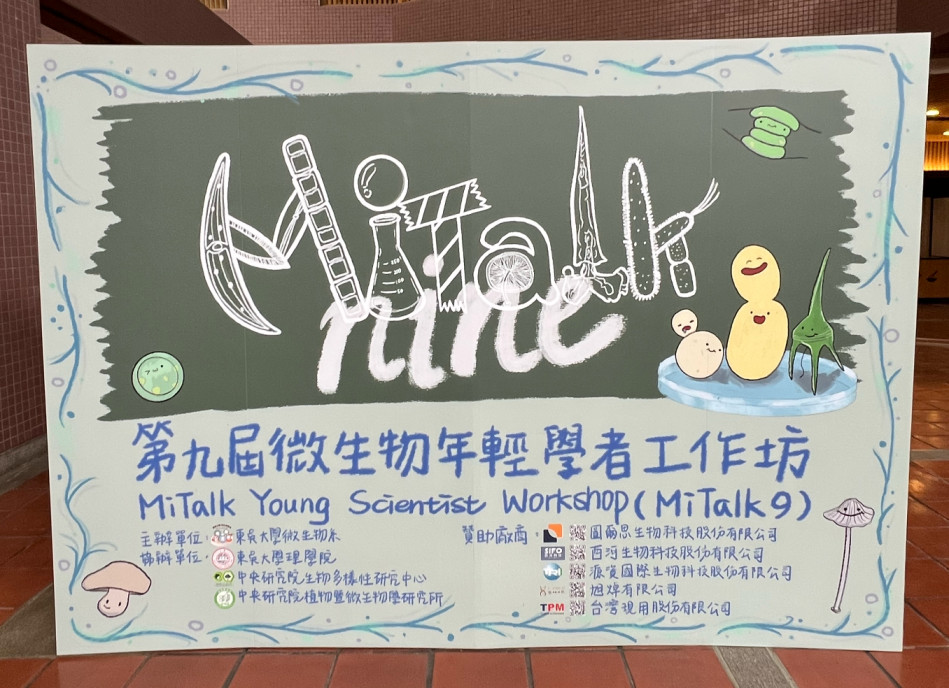 MiTalk
nine
第九屆微生物年輕學者工作坊
MiTalk Young Scientist Workshop (MiTalk 9)
主辦單位: 東吳大學微生物系
協辦單位: 東吳大學理學院
中央研究院生物多樣性研究中心
中央研究院植物暨微生物學研究所
贊助廠商: 圖爾思生物科技股份有限公司
百河生物科技股份有限公司
派資國際生物科技股份有限公司
旭煒有限公司
TPM 台灣視用股份有限公司